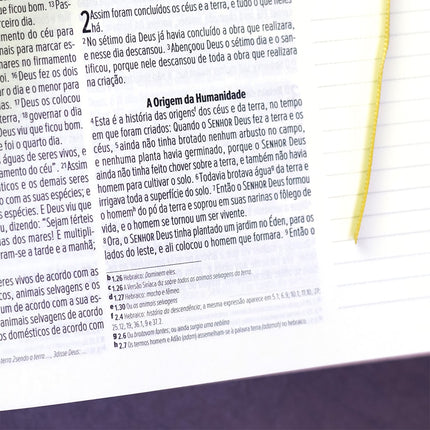 que ficou bom. 13
rceiro dia.
amento do céu para
nais para marcar es-
nares no firmamento
oi. 16 Deus fez os dois
r o dia e o menor para
as. 17 Deus os colocou
terra, 18 governar o dia
Deus viu que ficou bom.
foi o quarto dia.
águas de seres vivos, e
amento do céu”. 21 Assim
ticos e os demais seres
com as suas espécies; e
espécies. E Deus viu que
u, dizendo: “Sejam férteis
as dos mares! E multipli-
ram-se a tarde e a manhã;
eres vivos de acordo com as
cos, animais selvagens e os
um de acordo com a sua es-
animais selvagens de acordo
os domésticos de acordo com
2 Assim foram concluídos os céus e a terra, e tudo o que neles
há.
2 No sétimo dia Deus já havia concluído a obra que realizara,
e nesse dia descansou. 3 Abençoou Deus o sétimo dia e o san-
tificou, porque nele descansou de toda a obra que realizara
na criação.
A Origem da Humanidade
4 Esta é a história das origens f dos céus e da terra, no tempo
em que foram criados: Quando o SENHOR Deus fez a terra e os
céus, 5 ainda não tinha brotado nenhum arbusto no campo,
e nenhuma planta havia germinado, porque o SENHOR Deus
ainda não tinha feito chover sobre a terra, e também não havia
homem para cultivar o solo. 6 Todavia brotava água g da terra e
irrigava toda a superfície do solo. 7 Então o SENHOR Deus formou
o homem h do pó da terra e soprou em suas narinas o fôlego de
vida, e o homem se tornou um ser vivente.
8 Ora, o SENHOR Deus tinha plantado um jardim no Éden, para os
lados do leste, e ali colocou o homem que formara. 9 Então o
b 1.26 Hebraico: Dominem eles.
c 1.26 A Versão Siríaca diz sobre todos os animais selvagens da terra.
d 1.27 Hebraico: macho e fêmea
e 1.30 Ou os animais selvagens
f 2.4 Hebraico: história da descendência; a mesma expressão aparece em 5.1; 6.9; 10.1; 11.10, 27;
25.12, 19; 36.1, 9 e 37.2.
g 2.6 Ou brotavam fontes; ou ainda surgia uma neblina
h 2.7 Os termos homem e Adão (adam) assemelham-se à palavra terra (adamah) no hebraico.